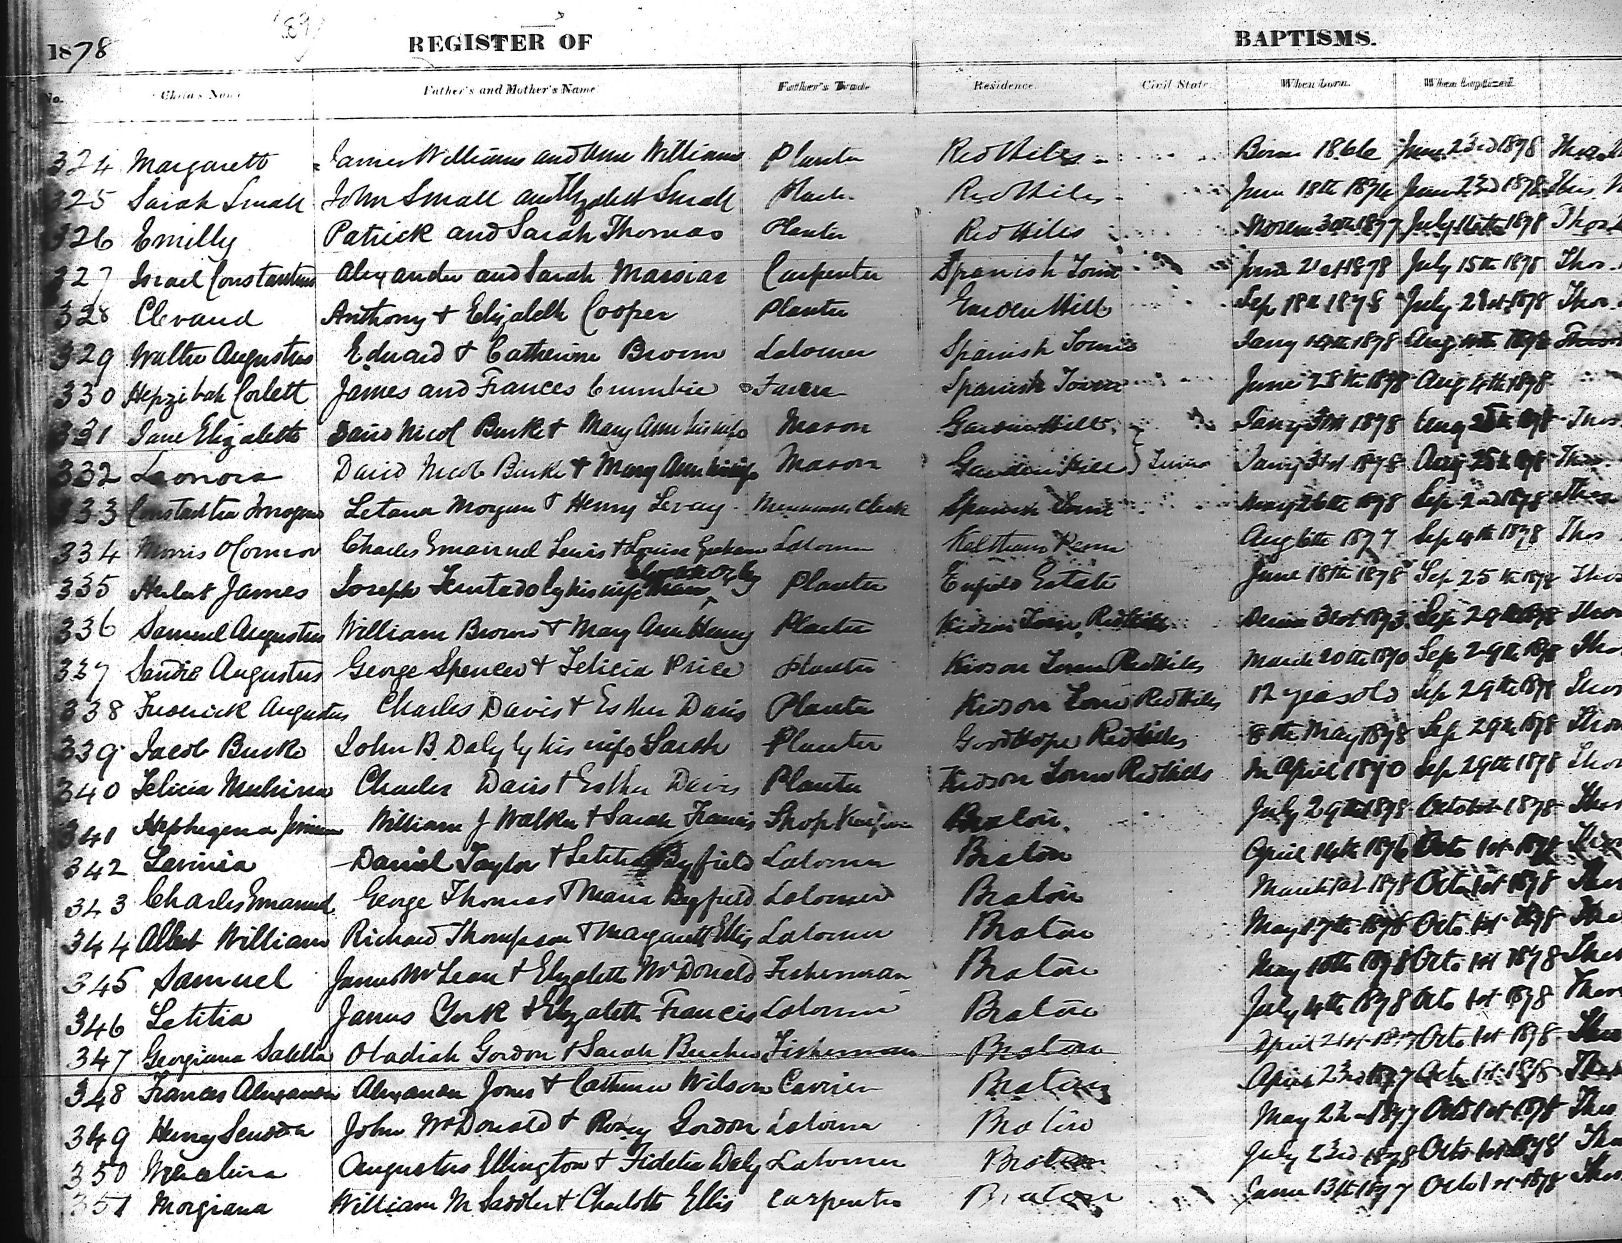 1878 REGISTER OF BAPTISMS.
No. Child's Name Father's and Mother's Name Father's Trade Residence Civil State When born. When baptized.
324 Margarett James Williams and Ann Williams Planter Red Hills Born 1866 June 23rd 1878 Thos
325 Sarah Small John Small and Elyzabeth Small Plante Red Hills June 18th 1876 June 23rd 1878 Thos
326 Emilly Patrick and Sarah Thomas Planter Red Hills 1877 July 1878 Thos
327 Israel Constantine Alexander and Sarah Massias Carpenter Spanish Town June 21st 1878 July 15th 1878 Thos
328 Clevaud Anthony + Elizabeth Cooper Planter Garden Hill Sep 18th 1878 July 21st 1878 Thos
329 Walter Augustus Edward + Catherine Brown Laborer Spanish Town Jany 1878 Aug 1878
330 Hepzibah Corlett James and Frances Crumbie Spanish Town June 28th 1878 Aug 4th 1878
331 Jane Elizabeth David Nicol Burke + Mary Ann his wife Mason Garden Hill Jany 31st 1878 Aug 25th 1878 Thos
332 Leonora David Nicol Burke + Mary Ann his wife Mason Garden Hill } Twins Jany 31st 1878 Aug 25th 1878 Thos
333 Imogene Letana Morgan + Henry Levay Clerk Spanish Town May 26th 1878 Sep 2nd 1878 Thos
334 Morris OConnor Charles Emanuel Lewis + Louisa Graham Laborer Kelsham Penn Aug 6th 1877 Sep 4th 1878 Thos
335 Herbert James Joseph Furtado by his wife Planter Enfield Estate June 18th 1878 Sep 25th 1878 Thos
336 Samuel Augustus William Brown + Mary Ann Henry Planter Kidson Town Red Hills Sep 29th 1878 Thos
337 Augustus George Spencer + Felicia Price Planter Kidson Town Red Hills March 20th 1870 Sep 29th 1878 Thos
338 Frederick Augustus Charles Davis + Esther Davis Planter Kidson Town Red Hills 12 years old Sep 29th 1878 Thos
339 Jacob Burke John B. Daly by his wife Sarah Planter Good Hope Red Hills 8th May 1878 Sep 29th 1878 Thos
340 Felicia Charles Davis + Esther Davis Planter Kidson Town Red Hills In April 1870 Sep 29th 1878 Thos
341 William J Walker + Sarah Francis Shop Keeper Braton July 29th 1878 Octo 1st 1878 Thos
342 Lavinia Daniel Taylor + Letitia Byfield Laborer Braton April 14th 1876 Octo 1st 1878 Thos
343 Charles Emanuel George Thomas + Maria Byfield Laborer Braton March 1st 1878 Octo 1st 1878 Thos
344 Albert William Richard Thompson + Margarett Ellis Laborer Braton May 17th 1878 Octo 1st 1878 Thos
345 Samuel James McLean + Elyzabeth McDonald Fisherman Braton May 10th 1878 Octo 1st 1878 Thos
346 Letitia James York + Elyzabeth Francis Laborer Braton July 4th 1878 Octo 1st 1878 Thos
347 Georgiana Obadiah Gordon + Sarah Fisherman Braton April 21st 1877 Octo 1st 1878 Thos
348 Frances Alexander Alexander Jones + Catherine Wilson Carrier Braton April 23rd 1877 Octo 1st 1878 Thos
349 Henry John McDonald + Rosey Gordon Laborer Braton May 22 1877 Octo 1st 1878 Thos
350 Augustus Ellington + Fidelia Daly Laborer Braton July 23rd 1878 Octo 1st 1878 Thos
351 Morgiana William M Saddler + Charlotte Ellis Carpenter Braton June 13th 1877 Octo 1st 1878 Thos